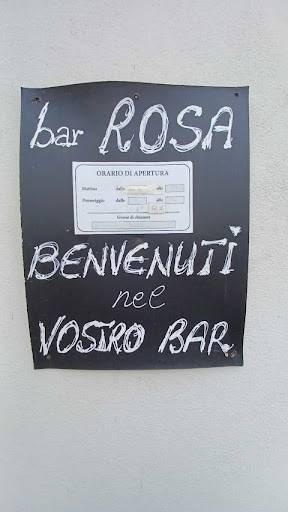 bar ROSA
ORARIO DI APERTURA
Mattina dalle alle
Pomeriggio dalle alle
Giorni di chiusura
BENVENUTI
nel
VOSTRO BAR